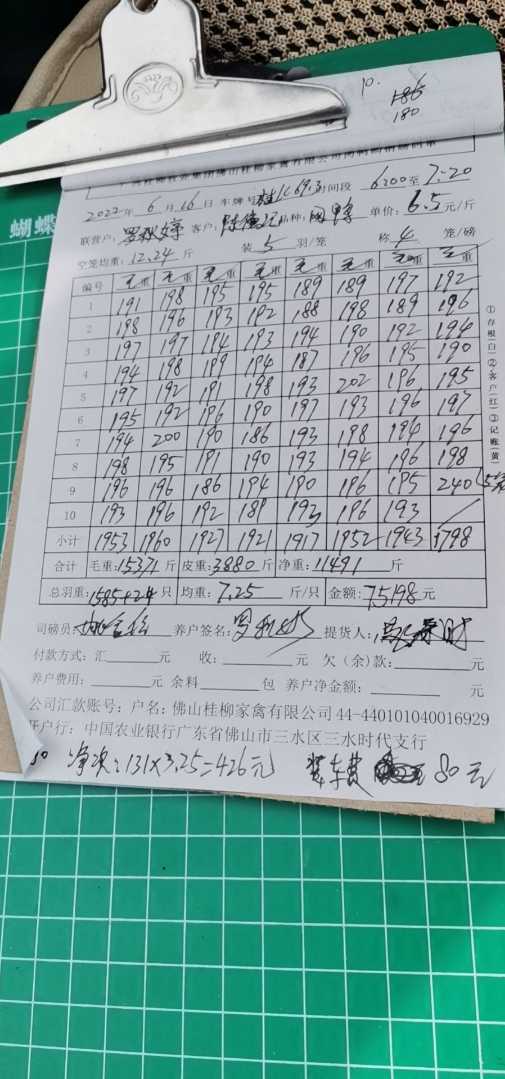 10. 186
180
蝴蝶
2022年 6月16日 车牌号 时间段 6:00至7:20
联营户: 客户: 品种: 单价: 6.5元/斤
空笼均重: 12.24斤 装 5 羽/笼 称 4 笼/磅
编号 毛重 毛重 毛重 毛重 毛重 毛重 毛重 毛重
1 191 198 195 195 189 189 197 192
2 198 196 193 192 188 198 189 196
3 197 197 194 193 194 190 192 194
4 194 198 189 194 187 196 195 190
5 197 192 191 198 193 202 196 195
6 195 192 196 190 197 193 196 197
7 194 200 190 186 193 198 194 196
8 198 195 191 190 193 194 196 198
9 196 196 186 194 190 196 195 240
10 193 196 192 189 193 196 193
小计 1953 1960 1927 1921 1917 1952 1943 1798
合计 毛重: 15371斤 皮重: 3880斤 净重: 11491斤
总羽重: 1585+24只 均重: 7.25斤/只 金额: 75198元
司磅员: 养户签名: 提货人:
付款方式: 汇 元 收: 元 欠(余)款: 元
养户费用: 元 余料 包 养户净金额: 元
公司汇款账号: 户名: 佛山桂柳家禽有限公司 44-440101040016929
开户行: 中国农业银行广东省佛山市三水区三水时代支行
131×3.25=426元 装车费 80元
①存根(白)②客户(红)③记账(黄)